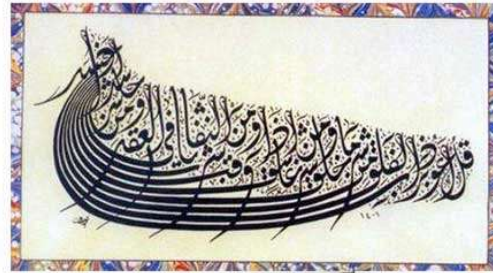 قل أعوذ برب الفلق من شر ما خلق ومن شر غاسق إذا وقب ومن شر النفاثات في العقد ومن شر حاسد إذا حسد
١٤٠١